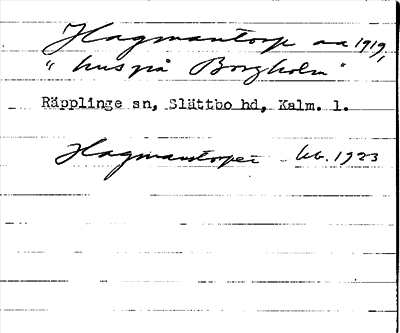 Hagmantorp aa 1919,
"hus på Borgholm"
Räpplinge sn, Slättbo hd, Kalm. l.
Hagmantorpet kb. 1923